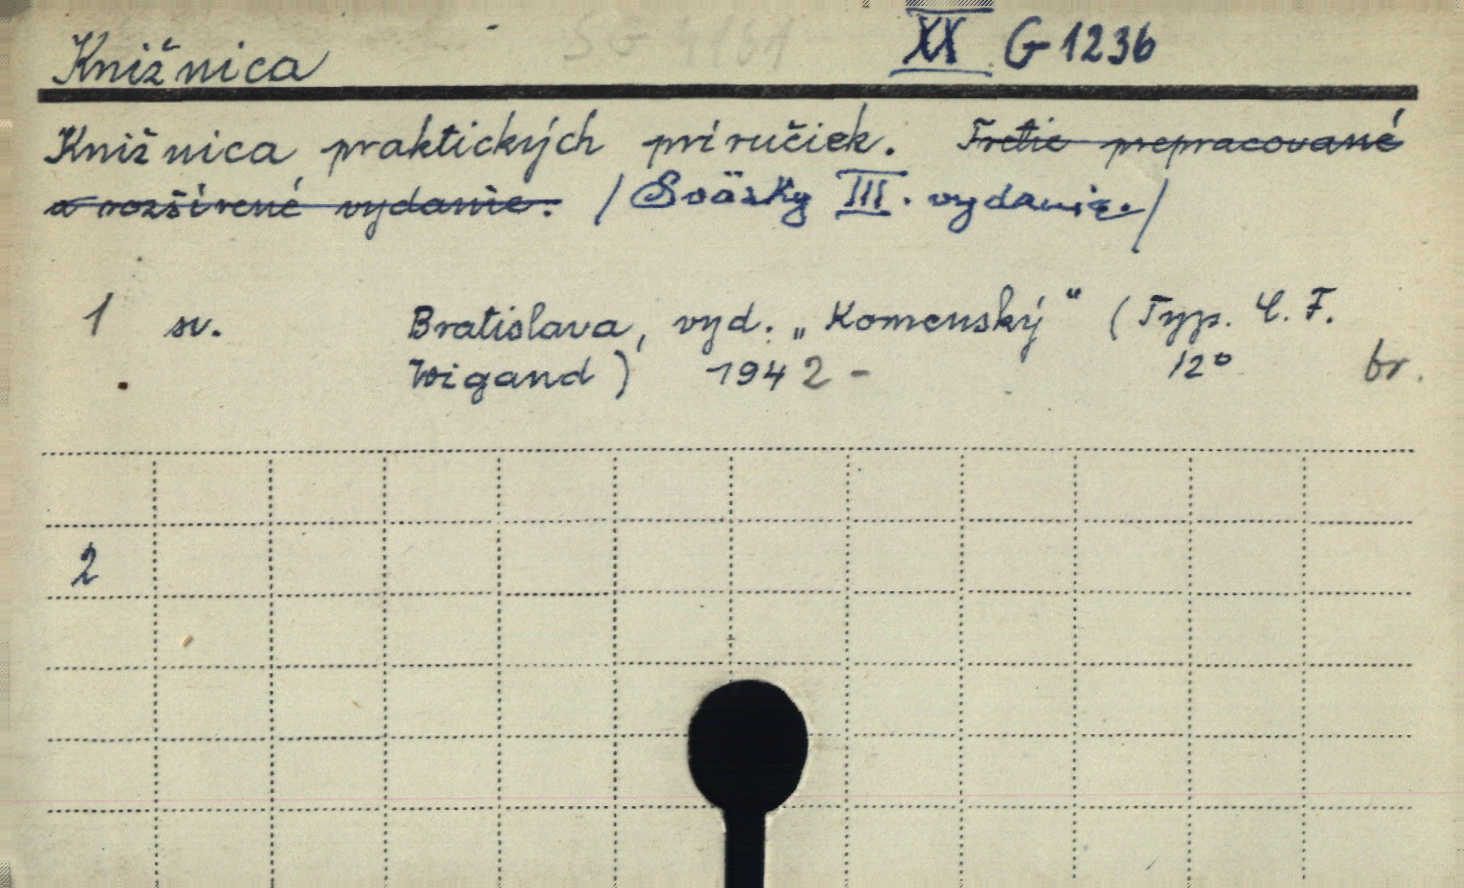 Knižnica XX G 1236
Knižnica praktických príručiek. Tretie prepracované
a rozšírené vydanie. / Sväzky III. vydanie. /
1 sv. Bratislava, vyd. „Komenský" (Typ. C. F.
Wigand) 1942 - 12° br.
2